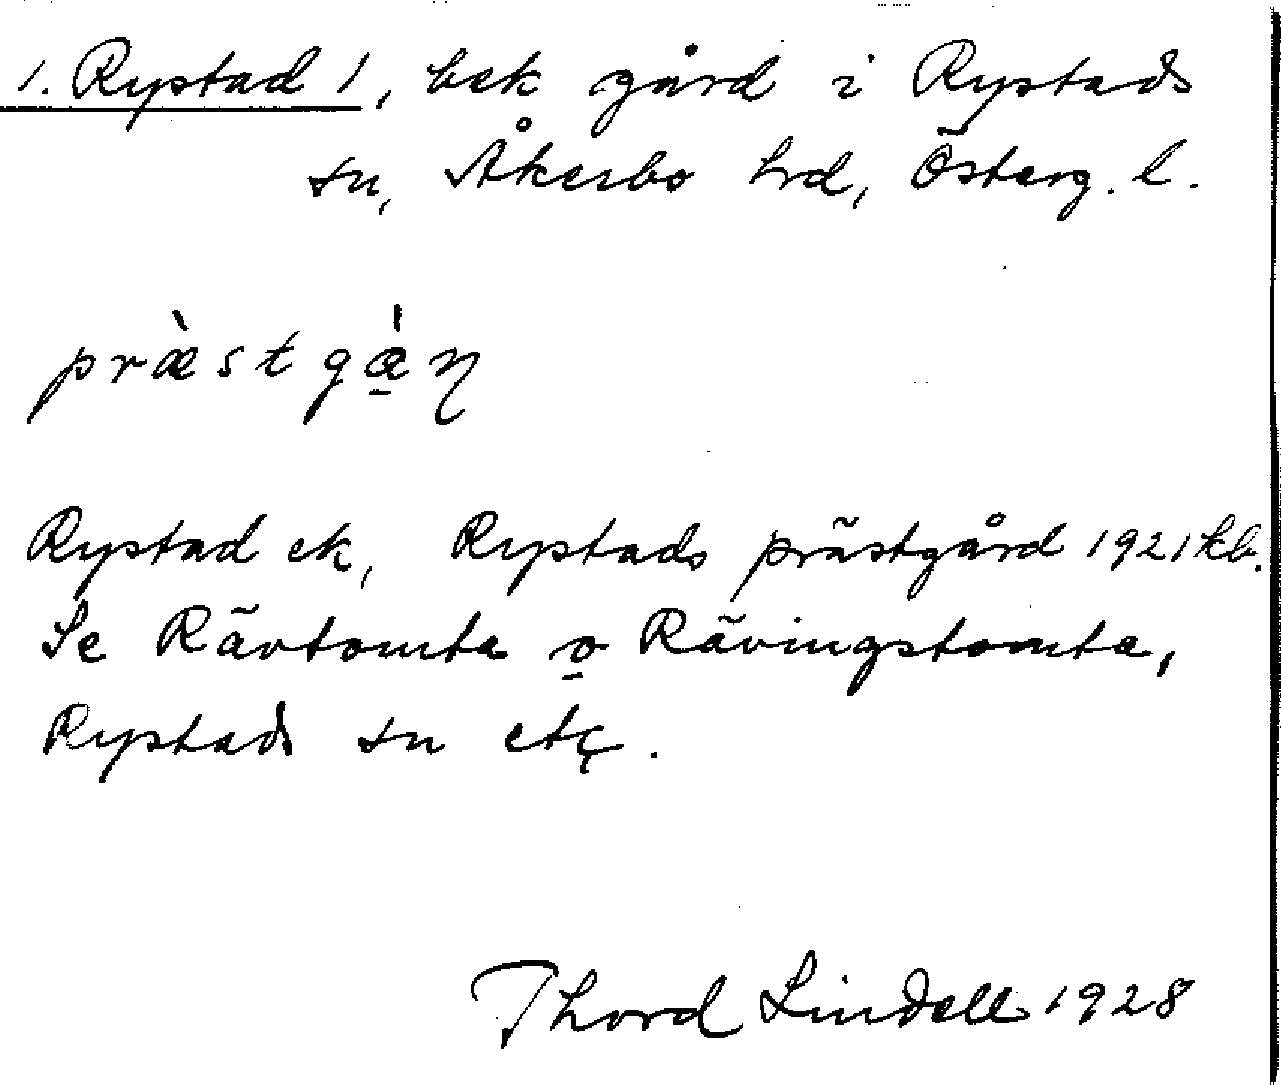 1. Rystad 1, bek gård i Rystads
sn, Åkerbo hrd, Österg. l.
præ̀stgæ̱̍ŋ
Rystad ek, Rystads prästgård 1921 kb.
Se Rävtomta o̱ Rävingstomta,
Rystads sn etc.
Thord Lindell 1928